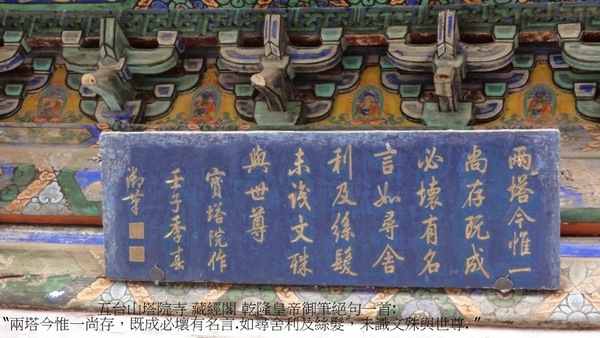 兩塔今惟一
尚存既成
必壞有名
言如尋舍
利及絲髮
未識文殊
與世尊
寶塔院作
壬午季春
御筆
五台山塔院寺 藏經閣 乾隆皇帝御筆絕句一首:
“兩塔今惟一尚存，既成必壞有名言.如尋舍利及絲髮，未識文殊與世尊.”